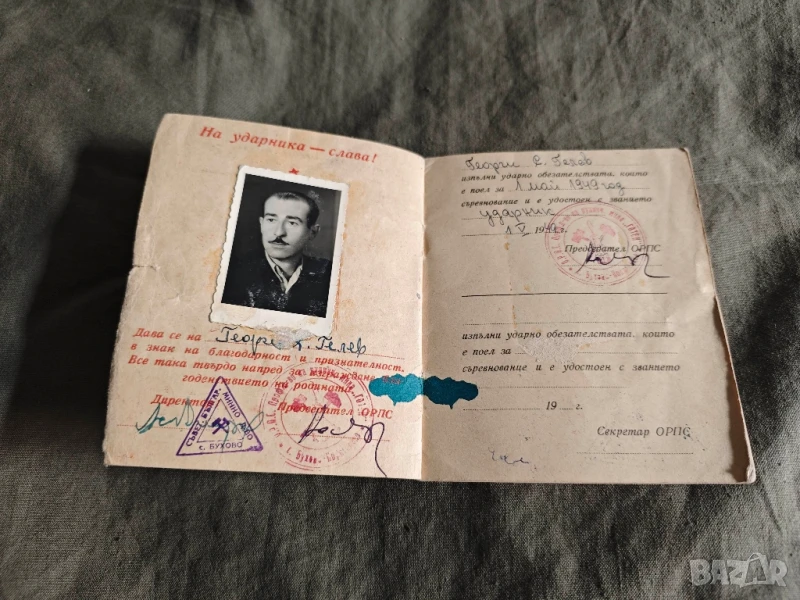 На ударника — слава!
Дава се на Георги Х. Гелев
в знак на благодарност и признателност.
Все така твърдо напред за изграждане
годенствието на родината.
Директор Председател ОРПС
СЪВЕТ. БЪЛГАР. МИННО
с. БУХОВО
Георги Х. Гелев
изпълни ударно обезателствата, които
е поел за 1 май 1949 год
съревнование и е удостоен с званието
ударник
1.V. 19 г.
Председател ОРПС
изпълни ударно обезателствата, които
е поел за
съревнование и е удостоен с званието
19 г.
Секретар ОРПС
BAZAR